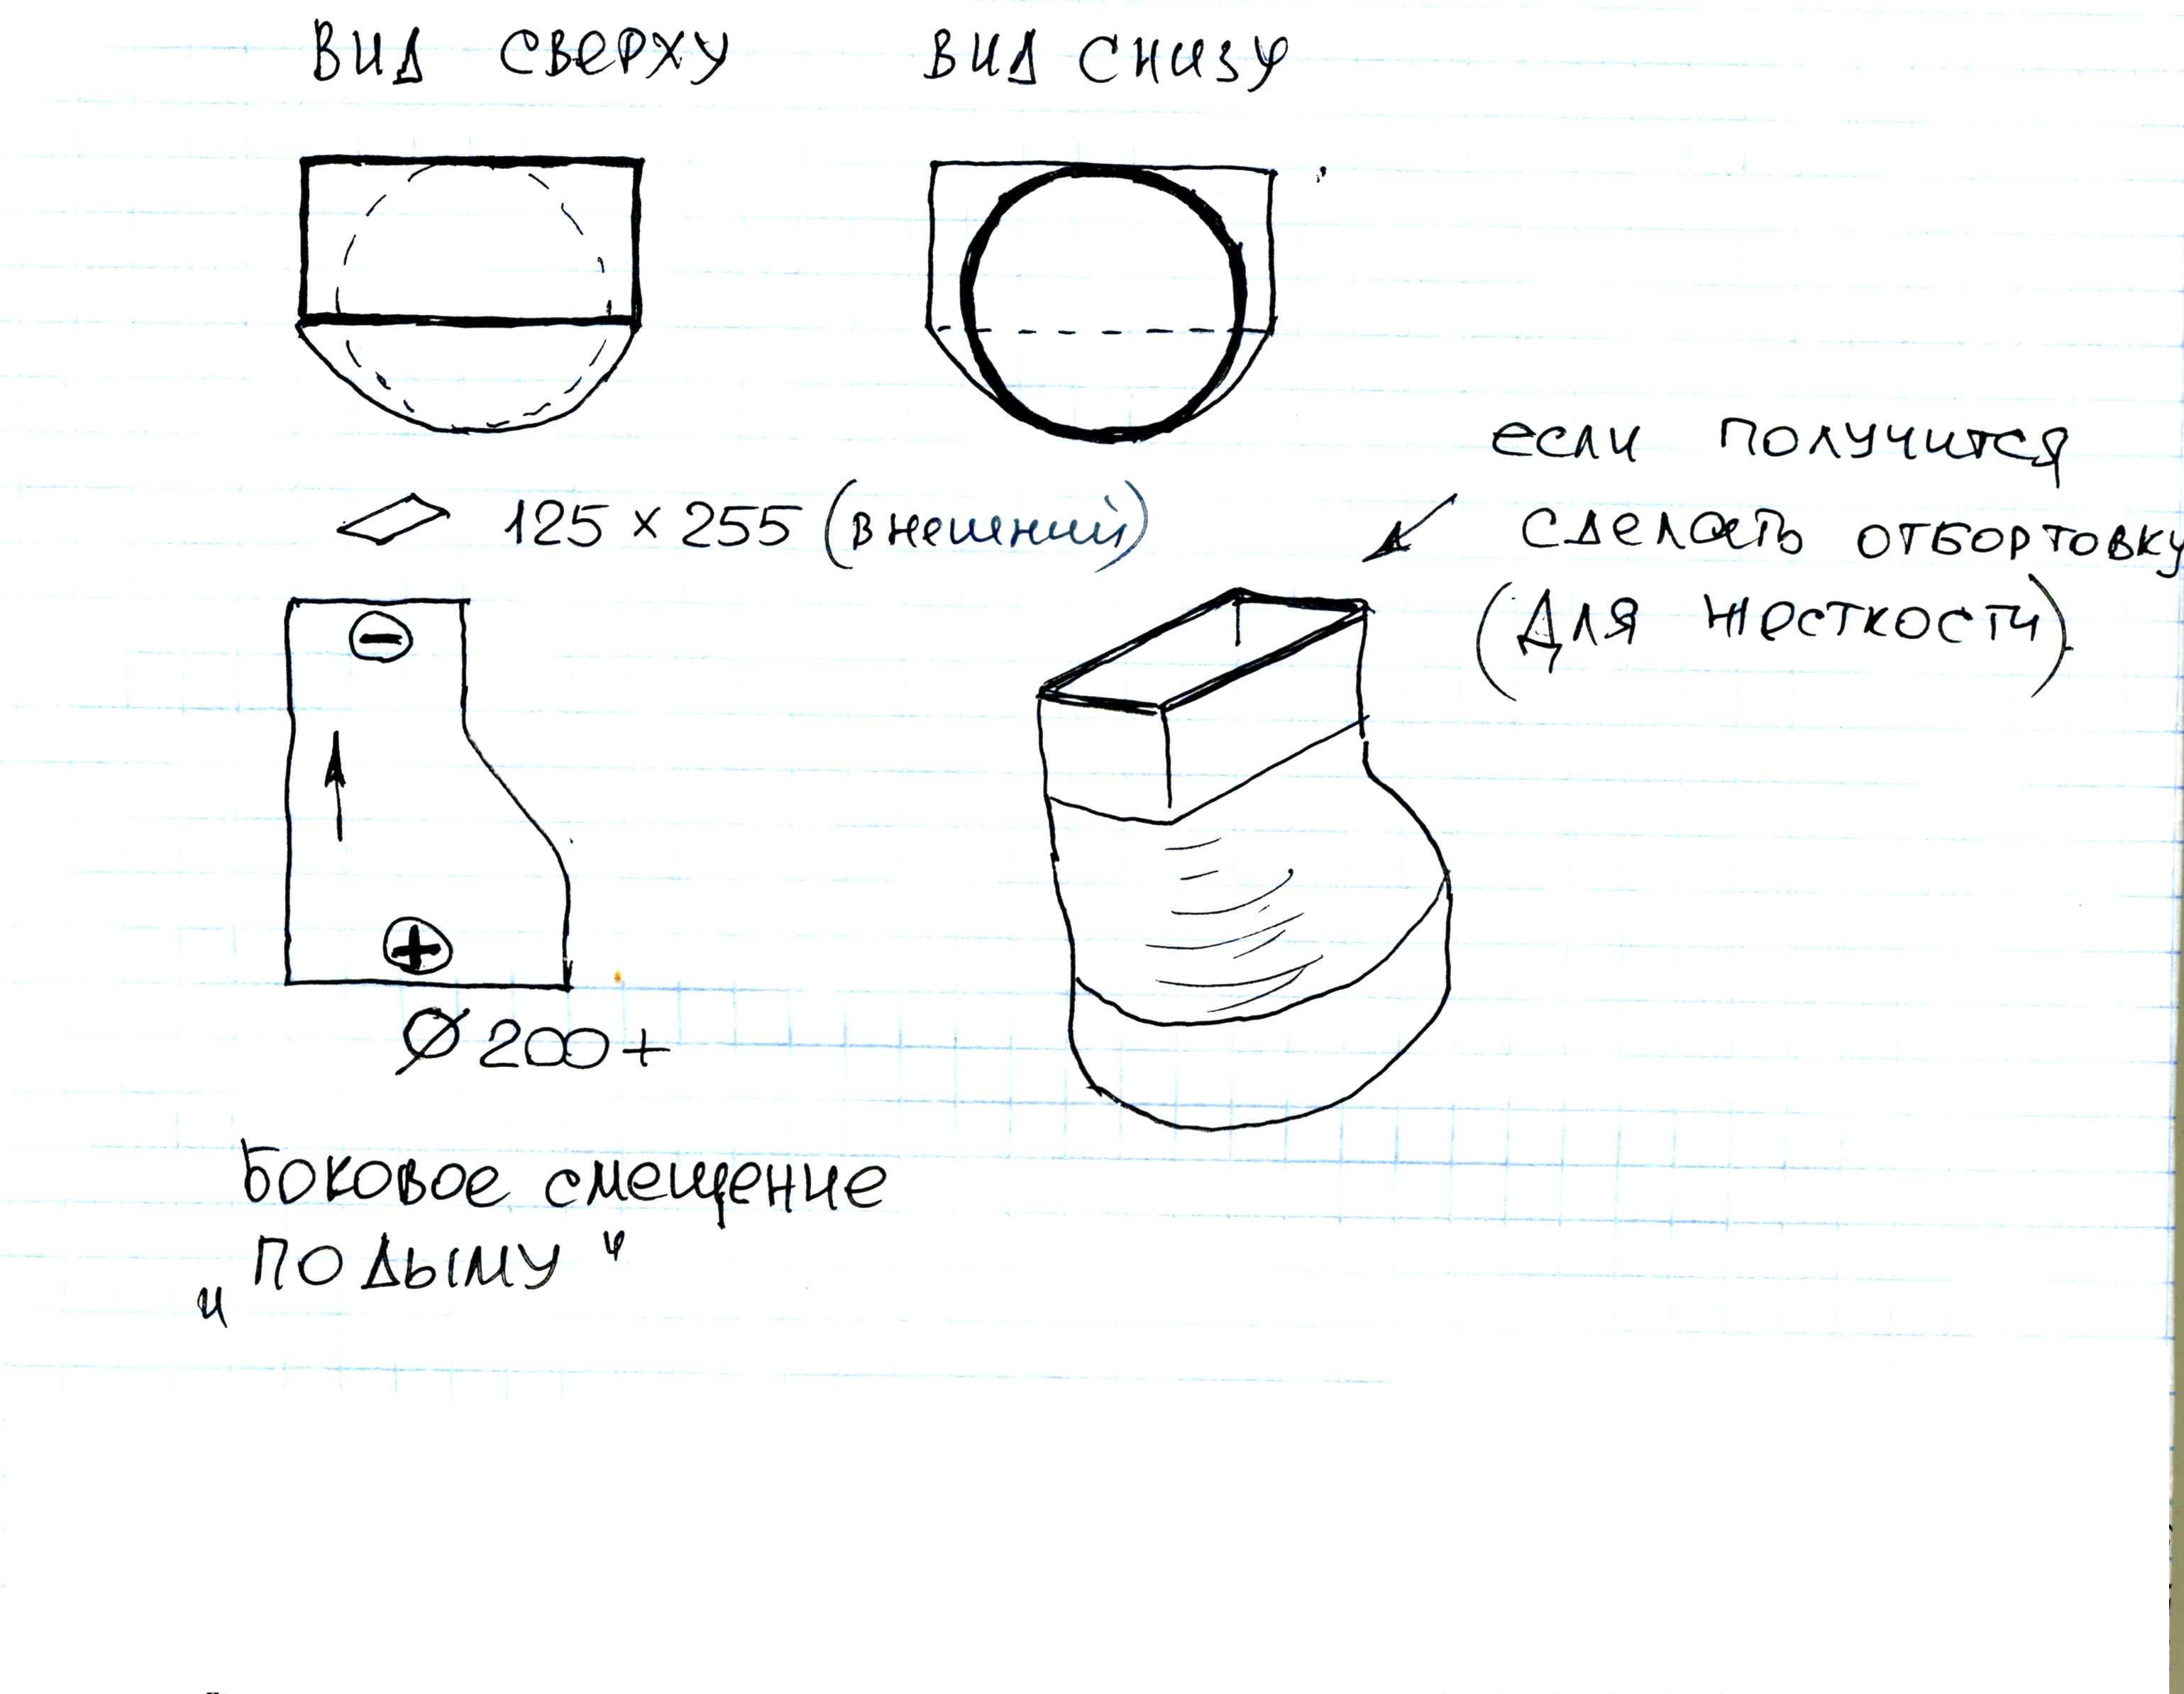 ВИД СВЕРХУ
ВИД СНИЗУ
125 x 255 (внешний)
если получится
сделать отбортовку
(для жесткости)
−
+
Ø 200 +
Боковое смещение
„по дыму"